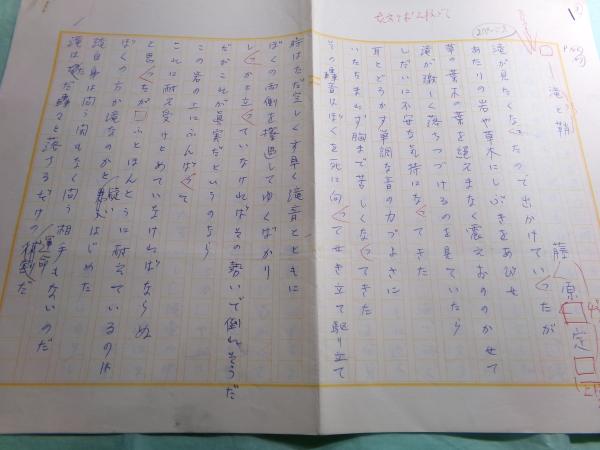 滝と鞘
藤原定
滝が見たくなったので出かけていったが
あたりの岩や草木にしぶきをあびせ
草の葉木の葉を絶えまなく震えおののかせて
滝が激しく落ちつづけるのを見ていたら
しだいに不安な気持になってきた
耳をとどろかす単調な音の力づよさに
いたたまれず胸まで苦しくなってきた
その轟音はぼくを死に向ってせき立て駆り立て
時はただ空しくす早く滝音とともに
ぼくの両側を擦過してゆくばかり
しっかと立っていなければその勢いで倒れそうだ
だがこれが真実だというのなら
この岩の上にふんばって
これに耐え受けとめていなければならぬ
と思ったが ふとほんとうに耐えているのは
ぼくの方か滝なのかと疑いはじめた
滝自身は問う間もなく問う相手もないのだ
滝はただ轟々と落ちるだけの運命だ